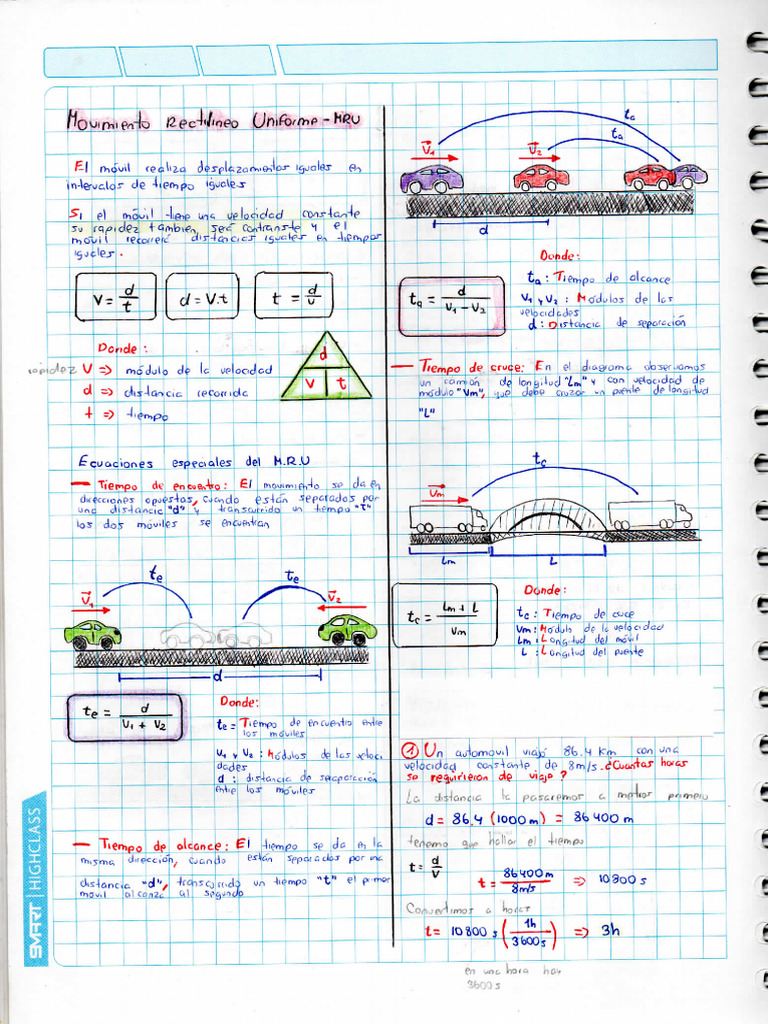 Movimiento Rectilineo Uniforme - MRU
El móvil realiza desplazamientos iguales en
intervalos de tiempo iguales
Si el móvil tiene una velocidad constante
su rapidez tambien, será contranste y el
móvil recorrerá distancias iguales en tiempos
iguales.
V = d/t
d = V.t
t = d/v
Donde:
rapidez V => módulo de la velocidad
d => distancia recorrida
t => tiempo
d
V t
Ecuaciones especiales del M.R.U
— Tiempo de encuentro: El movimiento se da en
direcciones opuestas, cuando están separados por
una distancia "d" y transcurrido un tiempo "t"
los dos móviles se encuentran
te te
V1 V2
d
te = d / V1 + V2
Donde:
te = Tiempo de encuentro entre
los móviles
V1 y V2 : Módulos de las veloci
dades
d : distancia de separación
entre los móviles
— Tiempo de alcance: El tiempo se da en la
misma dirección, cuando están separados por una
distancia "d", transcurrido un tiempo "t" el primer
móvil alcanza al segundo
SMART | HIGHCLASS
ta
ta
V1 V2
d
ta = d / V1 - V2
Donde:
ta : Tiempo de alcance
V1 y V2 : Módulos de las
velocidades
d : Distancia de separación
— Tiempo de cruce: En el diagrama observamos
un camión de longitud "Lm" y con velocidad de
módulo "Vm", que debe cruzar un puente de longitud
"L"
tc
Vm
Lm L
tc = Lm + L / Vm
Donde:
tc : Tiempo de cuce
Vm : Módulo de la velocidad
Lm : Longitud del móvil
L : Longitud del puente
1 Un automovil viajó 86.4 km con una
velocidad constante de 8m/s. ¿Cuantas horas
se requirieron de viaje?
La distancia la pasaremos a metros primero
d = 86.4 (1000 m) = 86 400 m
tenemo que hallar el tiempo
t = d/v
t = 86400 m / 8m/s => 10 800 s
Convertimos a horas
t = 10 800 s (1h / 3600 s) => 3h
en una hora hay
3600 s